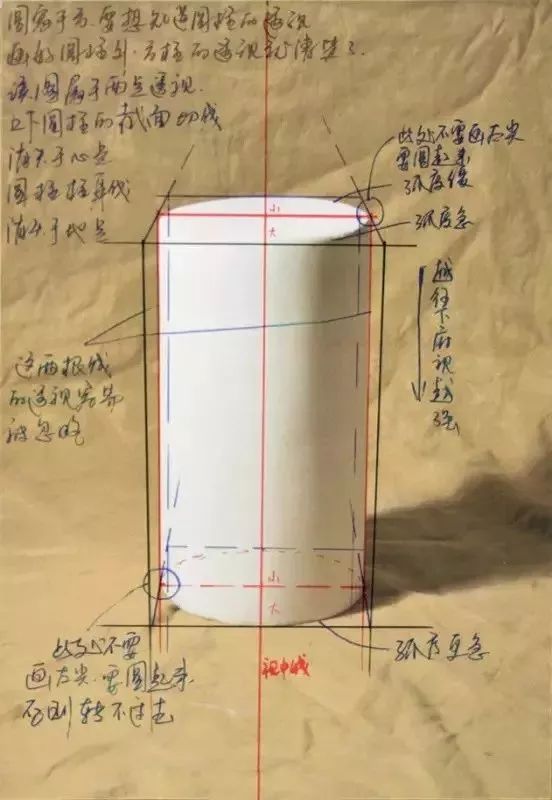 圆寓于方.要想知道圆柱的透视
画好圆柱外.方柱的透视就清楚了.
该图属于两点透视.
上下圆柱的截面切线
消失于心点
圆柱柱身线
消失于地点
此处不要画太尖
要圆起来
弧度缓
弧度急
小
大
越往下俯视越强
这两根线
的透视容易
被忽略
小
大
此处不要
画太尖.要圆起来
否则转不过去
弧度更急
视中线